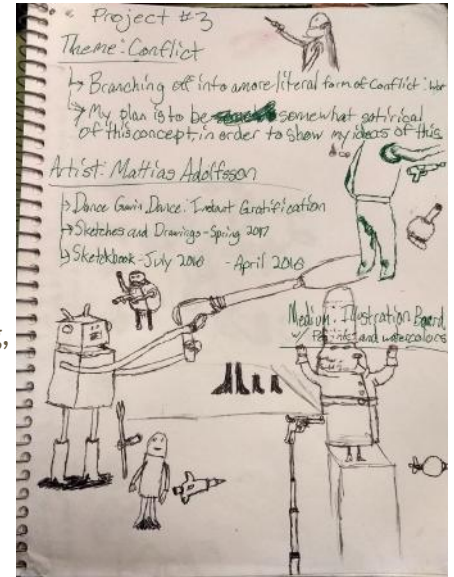 Project #3
Theme: Conflict
↳ Branching off into a more literal form of Conflict: War
↳ My plan is to be somewhat satirical
of this concept, in order to show my ideas of this
Artist: Mattias Adolfsson
↳ Dance Gavin Dance: Instant Gratification
↳ Sketches and Drawings - Spring 2017
↳ Sketchbook - July 2016 - April 2016
Medium: Illustration Board
w/ and watercolors